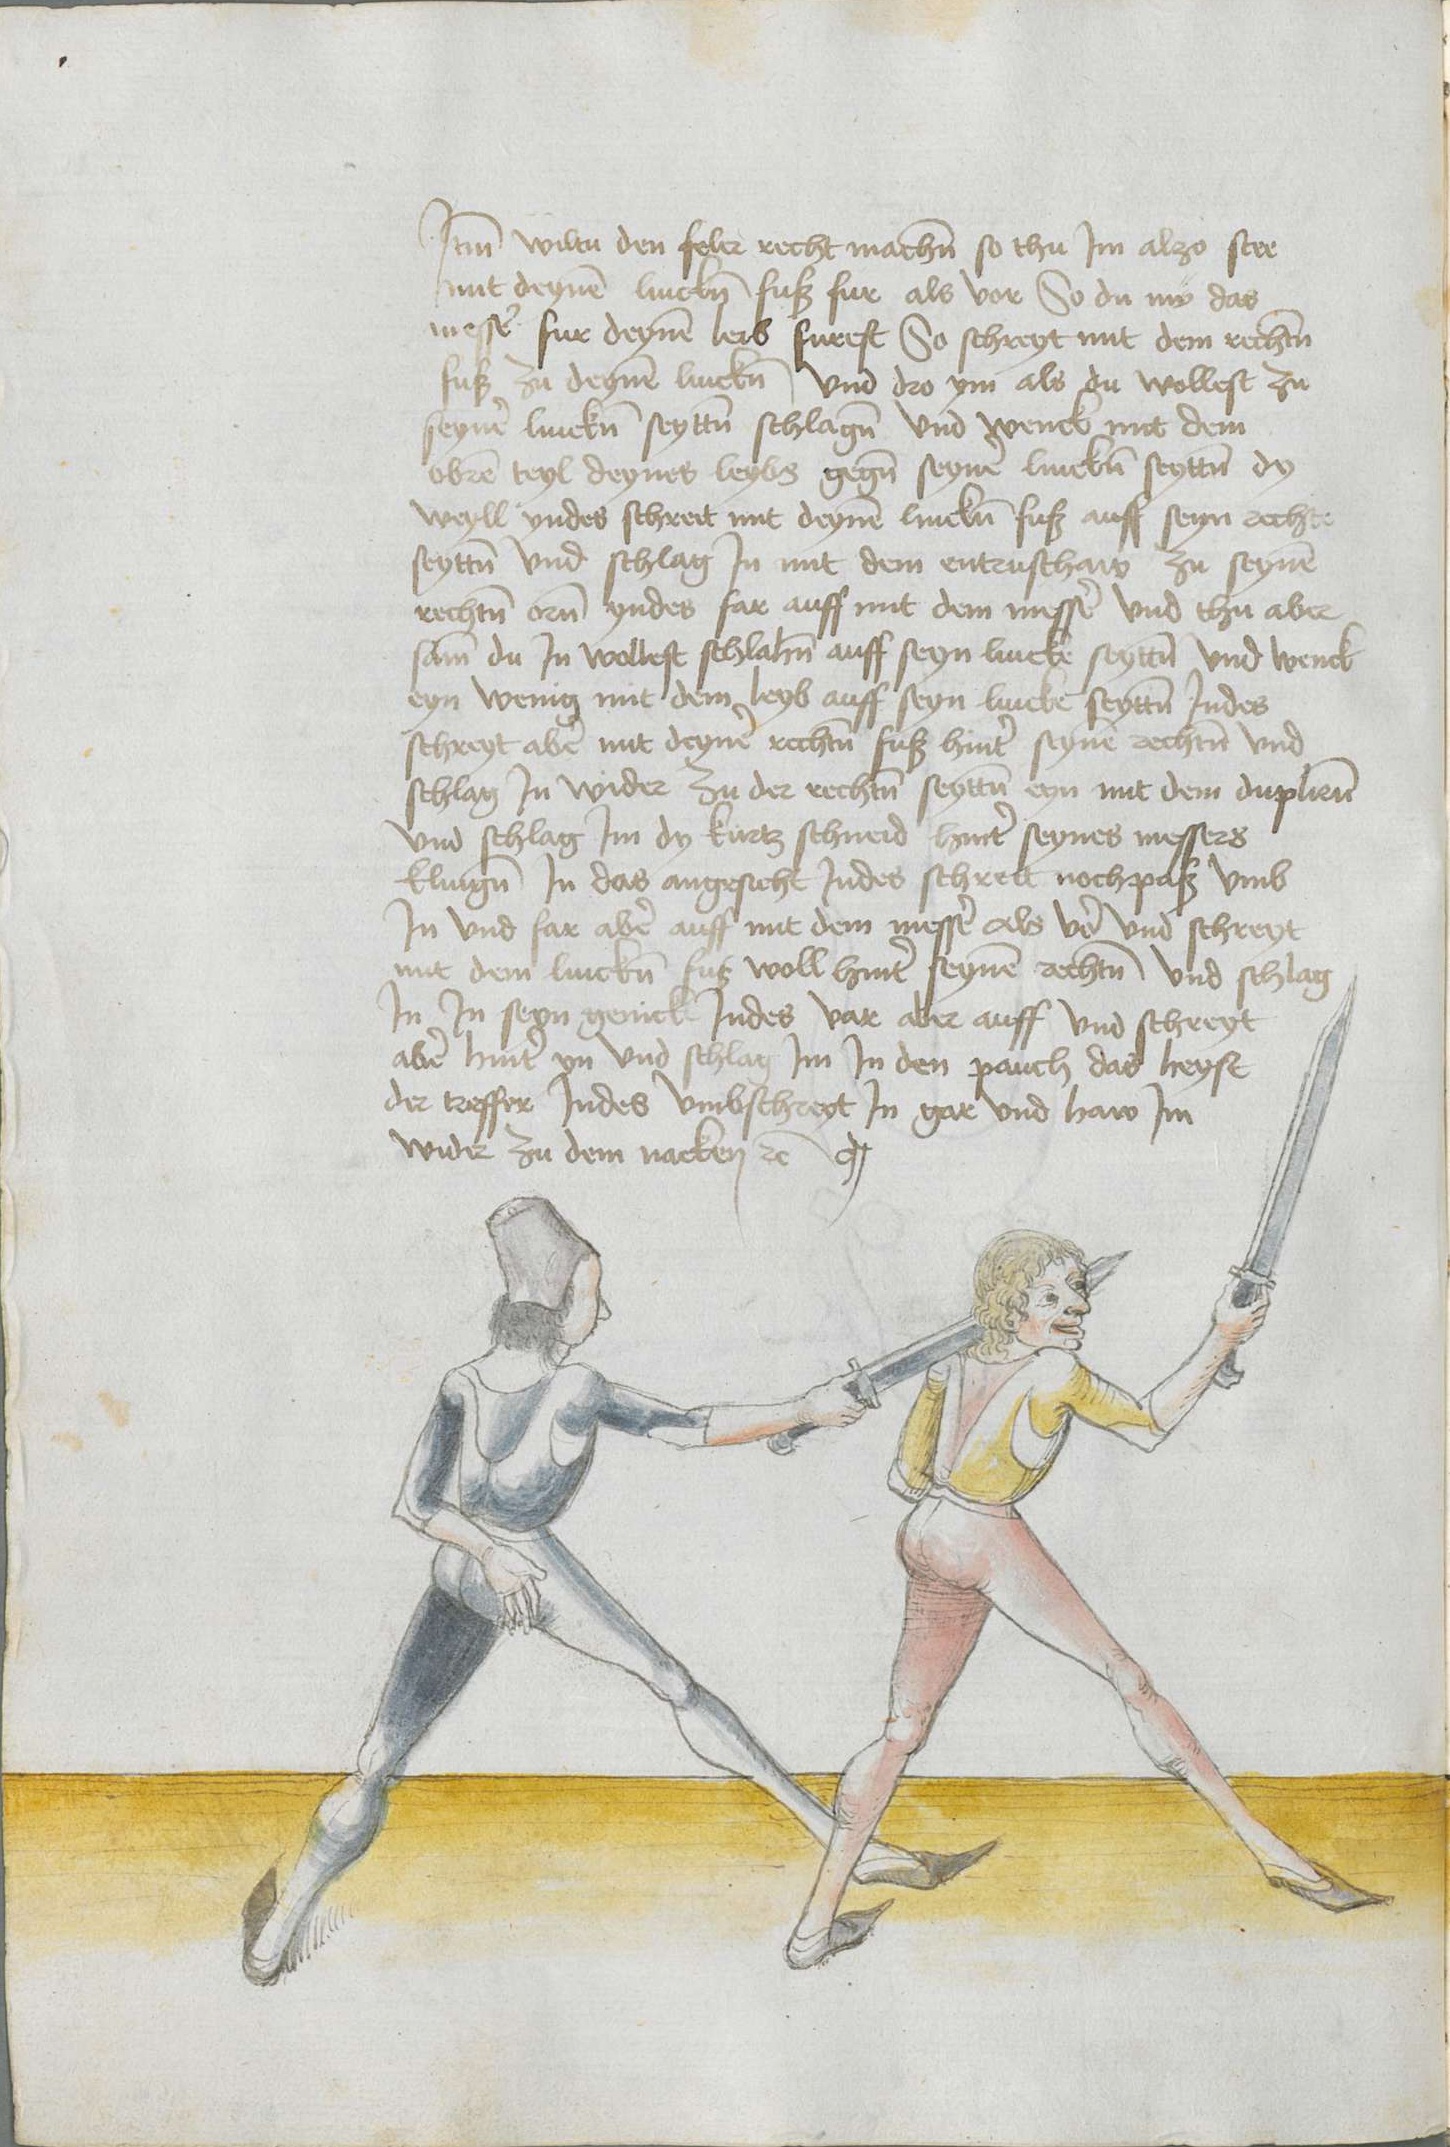 Itm̄ wiltu den feler recht machn̄ so thu Im alzo stee
mit deynē linckn̄ fuß fur als vor So du nw das
messe᷑ fur deynē leib furest So schreyt mit dem rechtn̄
fuß zu deynē linckn̄ vnd dro ym als du wollest zu
seyne᷑ linckn̄ seyttn̄ schlagn̄ vnd wenck mit dem
obrē teyl deynes leybs gegn̄ seyne᷑ linckn̄ seyttn̄ dy
weyll yndes schreit mit deynē linckn̄ fuß auff seyn rechte
seyttn̄ vnd schlag In mit dem entrusthaw zu seynē
rechtn̄ orn̄ yndes far auff mit dem messe᷑ vnd thu aber
sam̄ du In wollest schlahn̄ auff seyn lincke seyttn̄ vnd wenck
eyn wenig mit dem leyb auff seyn lincke seyttn̄ Indes
schreyt abe᷑ mit deynē rechtn̄ fuß hint᷑ seynē rechtn̄ vnd
schlag In wider zu der rechtn̄ seyttn̄ eyn mit dem duplirn̄
vnd schlag Im dy kurtz schneid hint᷑ seynes messers
klingn̄ In das angesicht Indes schreit nochpaß vmb
In vnd far abe᷑ auff mit dem messe᷑ als ve᷑ vnd schreyt
mit dem linckn̄ fuß woll hint᷑ seynē rechtn̄ vnd schlag
In In seyn genick Indes var aber auff vnd schreyt
abe᷑ hint᷑ yn vnd schlag Im In den pauch das heyst
der treffer Indes vmbschreyt In gar vnd haw Im
wider zu dem nacken rc̄